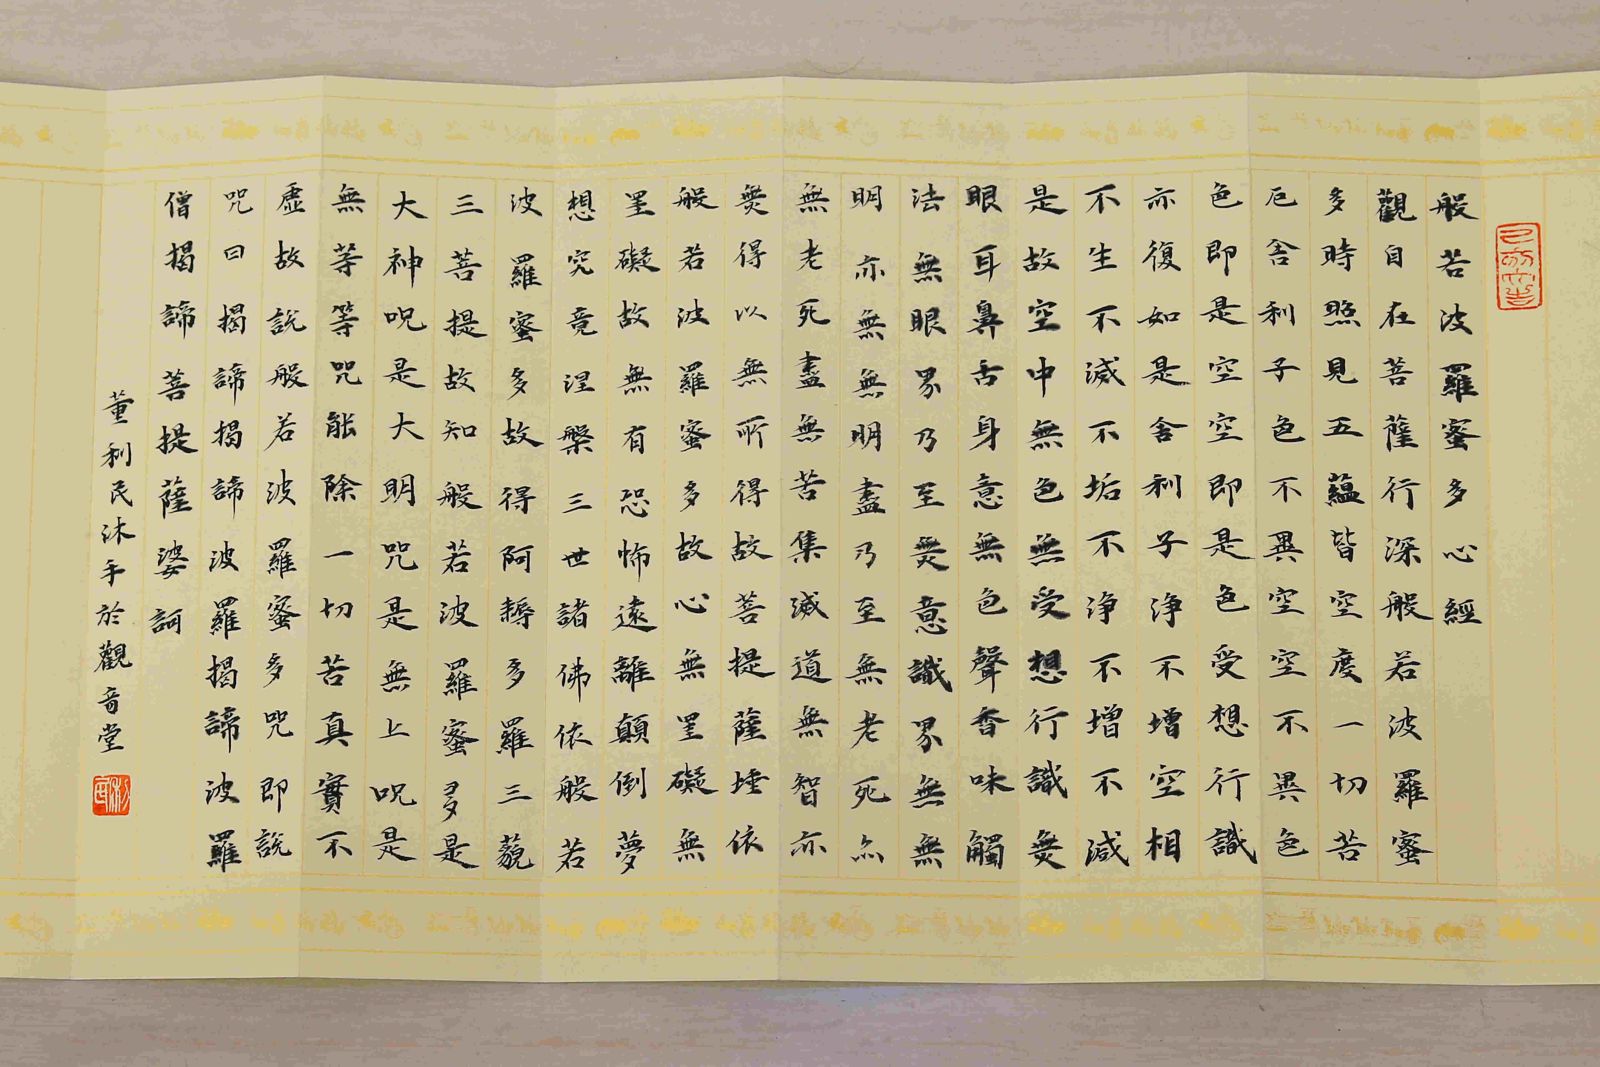 般若波羅蜜多心經
觀自在菩薩行深般若波羅蜜
多時照見五蘊皆空度一切苦
厄舍利子色不異空空不異色
色即是空空即是色受想行識
亦復如是舍利子浄不增空相
不生不滅不垢不浄不增不減
是故空中無色無受想行識無
眼耳鼻舌身意無色聲香味觸
法無眼界乃至無意識界無無
明亦無無明盡乃至無老死亦
無老死盡無苦集滅道無智亦
無得以無所得故菩提薩埵依
般若波羅蜜多故心無罣礙無
罣礙故無有恐怖遠離顛倒夢
想究竟涅槃三世諸佛依般若
波羅蜜多故得阿耨多羅三藐
三菩提故知般若波羅蜜多是
大神呪是大明呪是無上呪是
無等等呪能除一切苦真實不
虛故說般若波羅蜜多呪即說
呪曰揭諦揭諦波羅揭諦波羅
僧揭諦菩提薩婆訶
董利民沐手於觀音堂
利民